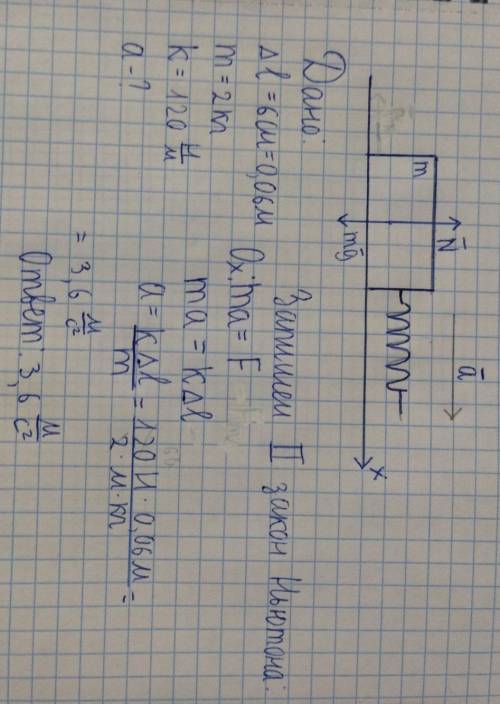 N̄
ā
m
x
mḡ
Дано:
Δl = 6см = 0,06м
m = 2кг
k = 120 Н/м
a - ?
Запишем II закон Ньютона:
Ox: ma = F
ma = kΔl
a = kΔl/m = 120 Н · 0,06м / 2 · м · кг =
= 3,6 м/с²
Ответ: 3,6 м/с²